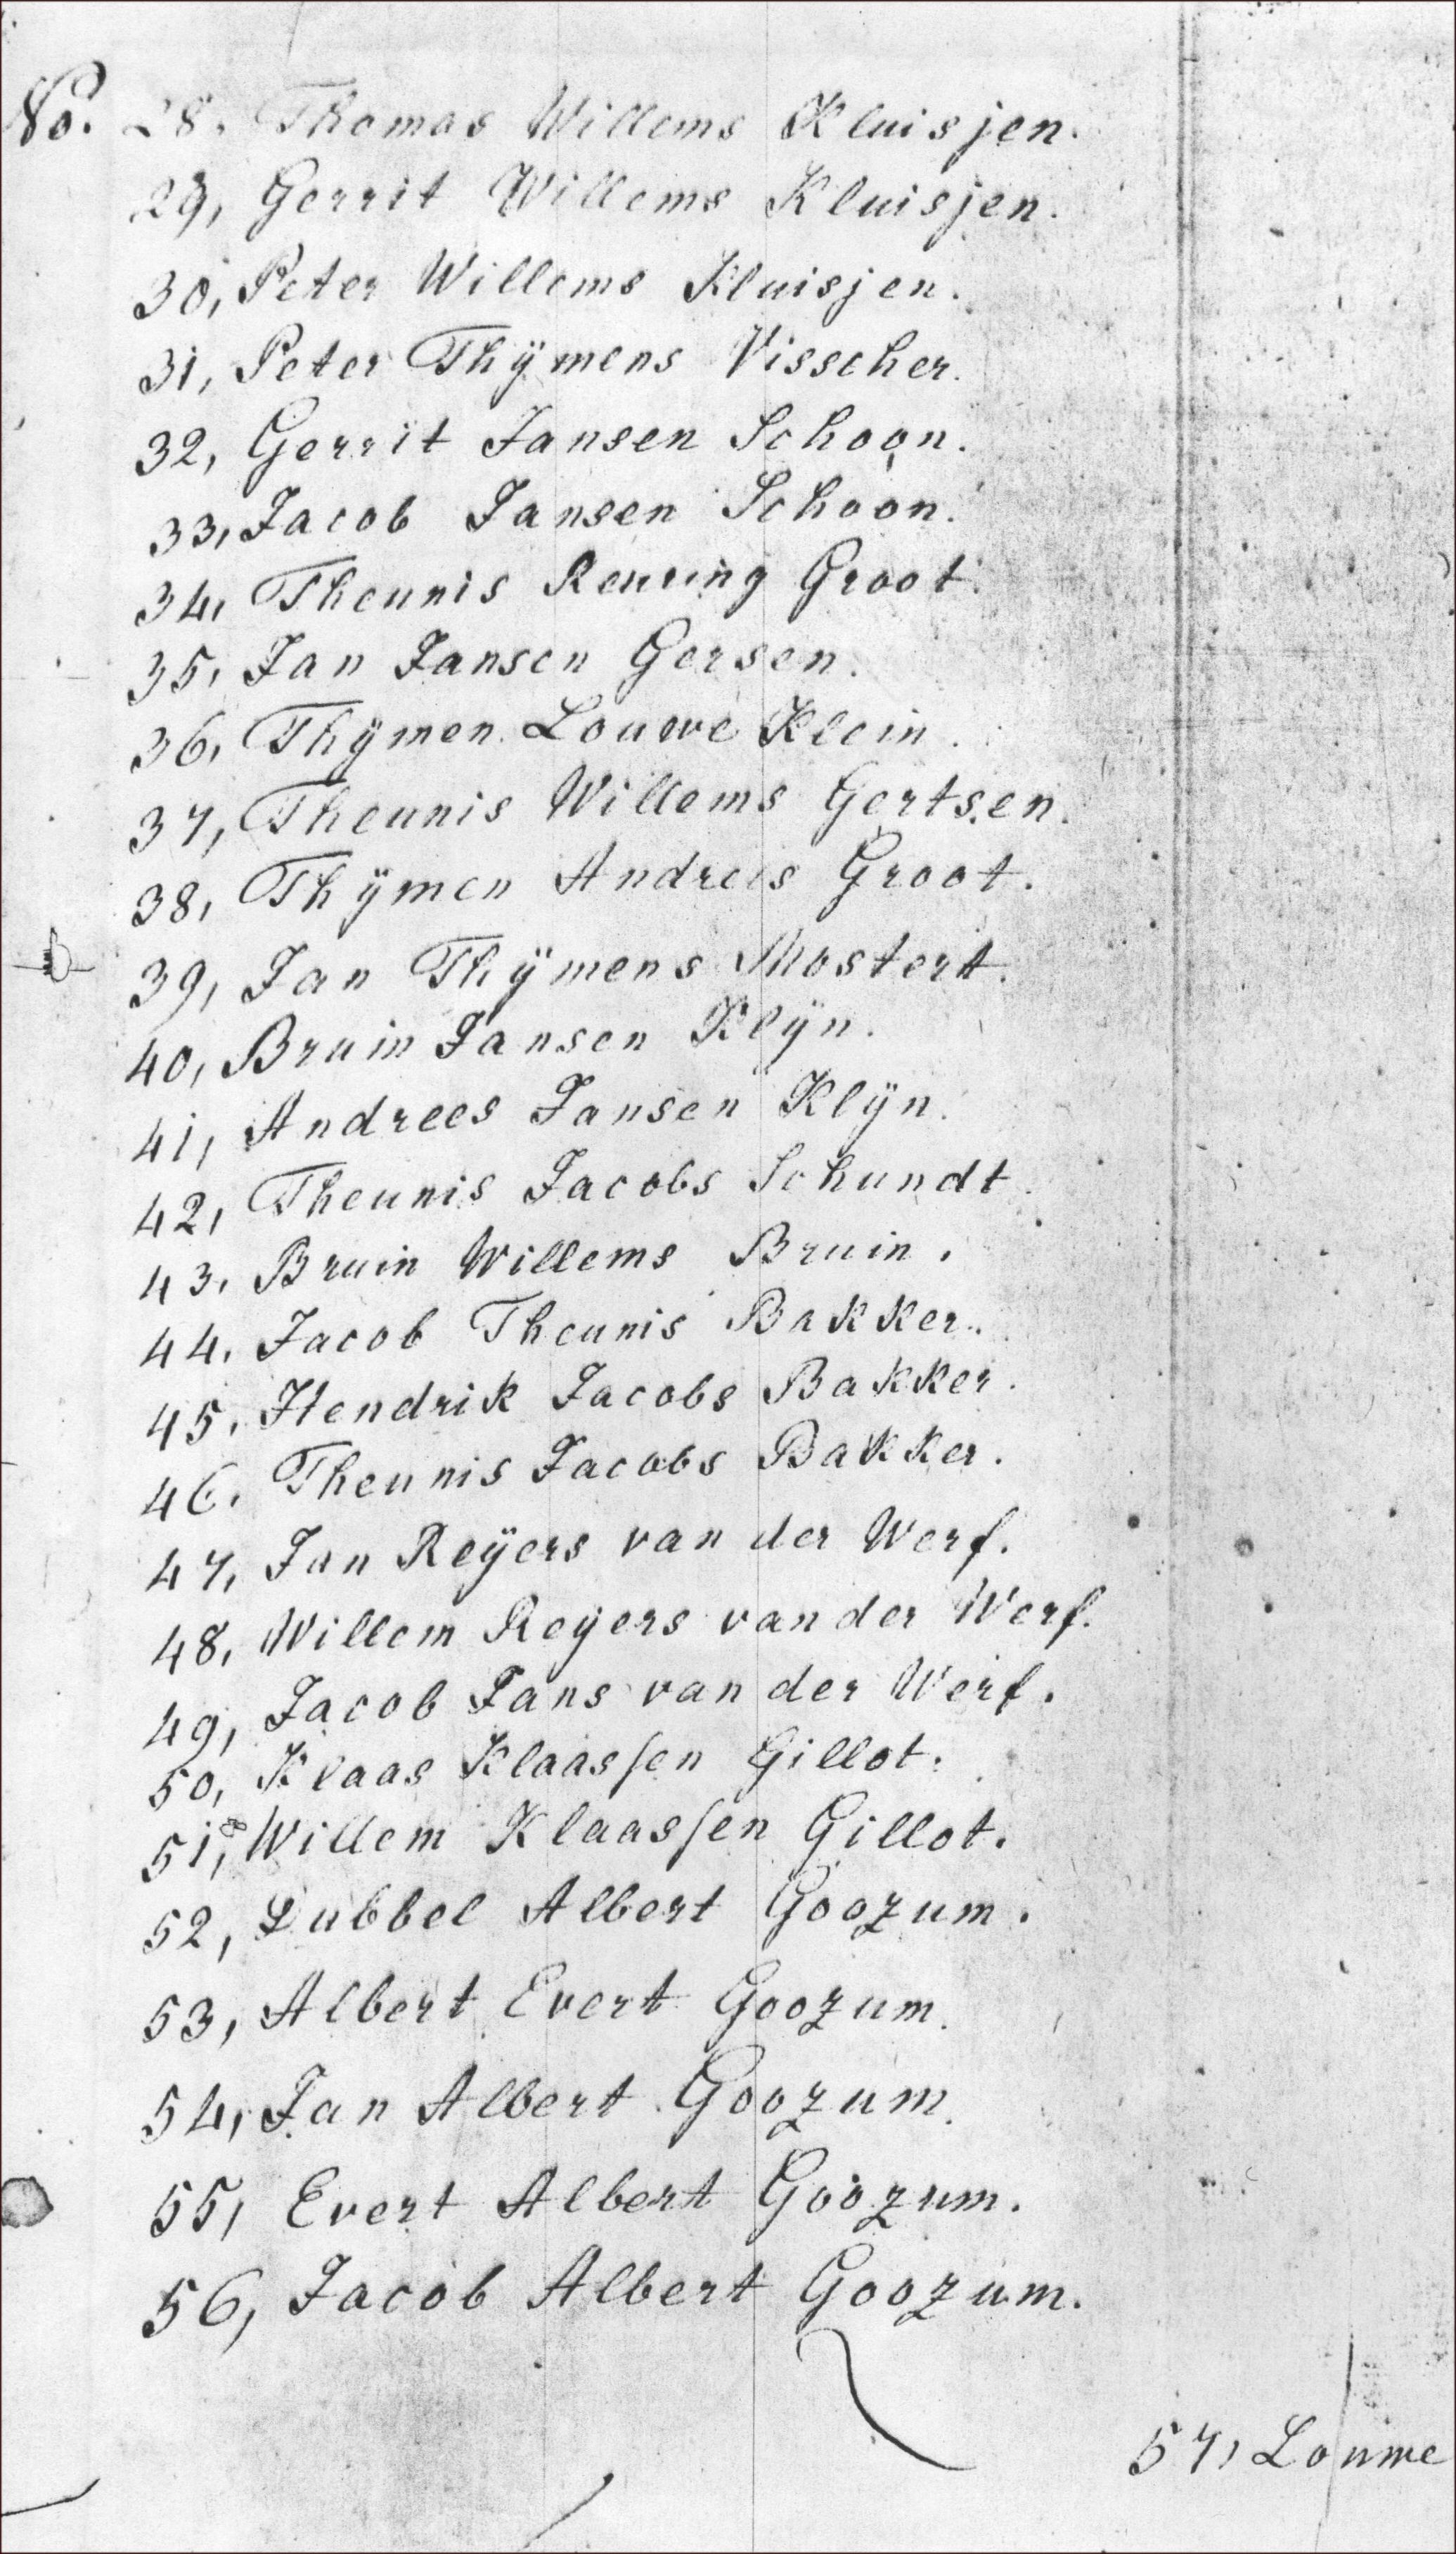 No. 28. Thomas Willems Kluisjen.
29, Gerrit Willems Kluisjen.
30, Peter Willems Kluisjen.
31, Peter Thÿmens Visscher.
32, Gerrit Jansen Schoon.
33, Jacob Jansen Schoon.
34, Theunis Reuring Groot.
35, Jan Jansen Gersen.
36, Thÿmen Louwe Klein.
37, Theunis Willems Gertsen.
38, Thÿmen Andreis Groot.
39, Jan Thÿmens Mostert.
40, Bruin Jansen Klÿn.
41, Andrees Jansen Klÿn.
42, Theunis Jacobs Schundt
43. Bruin Willems Bruin.
44. Jacob Theunis Bakker.
45. Hendrik Jacobs Bakker.
46. Theunis Jacobs Bakker.
47, Jan Reÿers van der Werf.
48, Willem Reÿers van der Werf.
49, Jacob Jans van der Werf.
50, Klaas Klaasſen Gillot.
51, Willem Klaasſen Gillot.
52, Lubbel Albert Goozum.
53, Albert Evert Goozum.
54, Jan Albert Goozum.
55, Evert Albert Goozum.
56, Jacob Albert Goozum.
57, Louwe